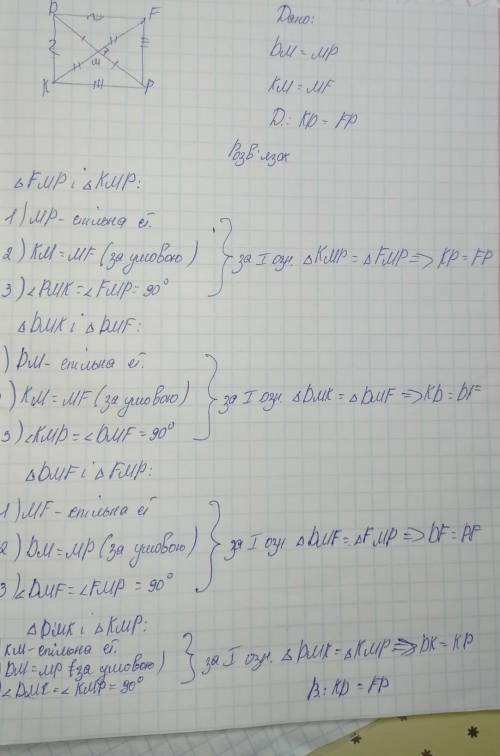 D F
K P
Дано:
DM = MP
KM = MF
D.: KD = FP
Розв'язок
△FMP і △KMP:
1) MP - спільна ст.
2) KM = MF (за умовою)
3) ∠PMK = ∠FMP = 90°
за I озн. △KMP = △FMP => KP = FP
△DMK і △DMF:
) DM - спільна ст.
) KM = MF (за умовою)
3) ∠KMD = ∠DMF = 90°
за I озн. △DMK = △DMF => KD = DF
△DMF і △FMP:
1) MF - спільна ст
2) DM = MP (за умовою)
3) ∠DMF = ∠FMP = 90°
за I озн △DMF = △FMP => DF = PF
△DMK і △KMP:
KM - спільна ст.
DM = MP (за умовою)
) ∠DMK = ∠KMP = 90°
за I озн. △DMK = △KMP => DK = KP
В.: KD = FP